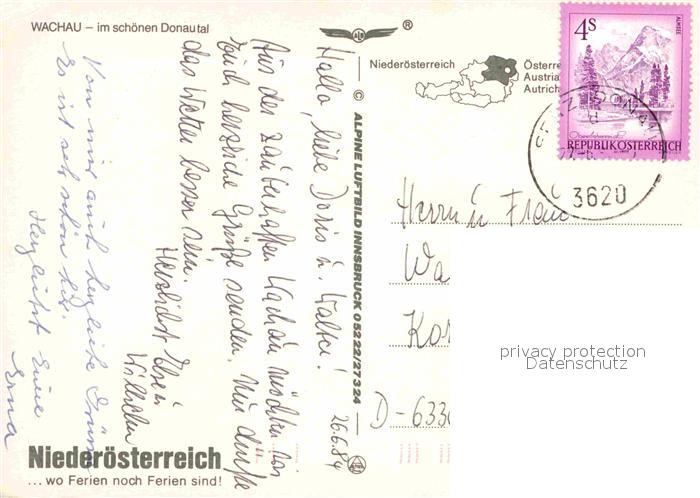 WACHAU – im schönen Donautal
ALB
®
Niederösterreich
Österre
Austria
Autrich
4S
ALMSEE
REPUBLIK ÖSTERREICH
SPITZ DONAU
3620
© ALPINE LUFTBILD INNSBRUCK 05222/27324
Hallo, liebe Doris u. Walter!
Aus der zauberhaften Wachau möchten wir
Euch herzliche Grüße senden. Nur dürfte
das Wetter besser sein.
Herzlichst Ihre
Wilhelm
26.6.84
Von mir auch herzliche Grüsse
Es ist sehr schön hier.
Herzlichst Eure
Erna
Herrn u Frau
Wa
Ko
D-6330
privacy protection
Datenschutz
Niederösterreich
... wo Ferien noch Ferien sind!